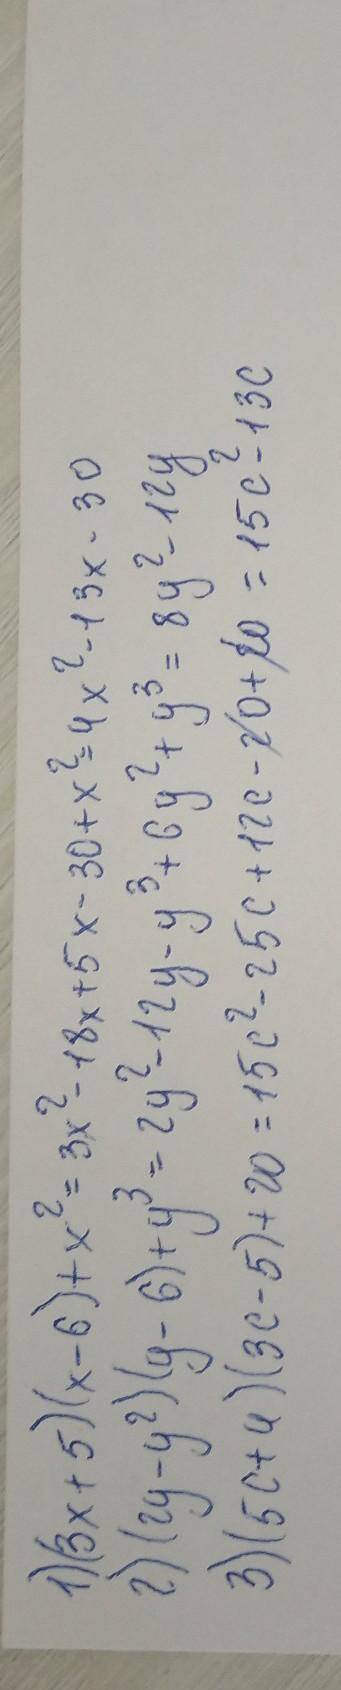 1)(3x+5)(x-6)+x²=3x²-18x+5x-30+x²=4x²-13x-30
2)(2y-y²)(y-6)+y³=2y²-12y-y³+6y²+y³=8y²-12y
3)(5c+4)(3c-5)+20=15c²-25c+12c-20+20=15c²-13c